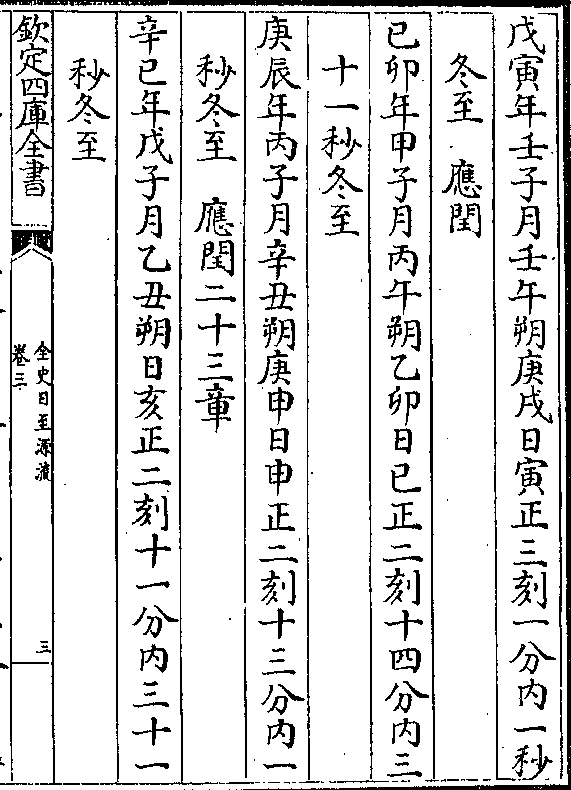 戊寅年壬子月壬午朔庚戌日寅正三刻一分内一秒
冬至　應閏
己卯年甲子月丙午朔乙卯日巳正二刻十四分内三
十一秒冬至
庚辰年丙子月辛丑朔庚申日申正二刻十三分内一
秒冬至　應閏二十三章
辛巳年戊子月乙丑朔日亥正二刻十一分内三十一
秒冬至
欽定四庫全書
全史日至源流
卷三
三